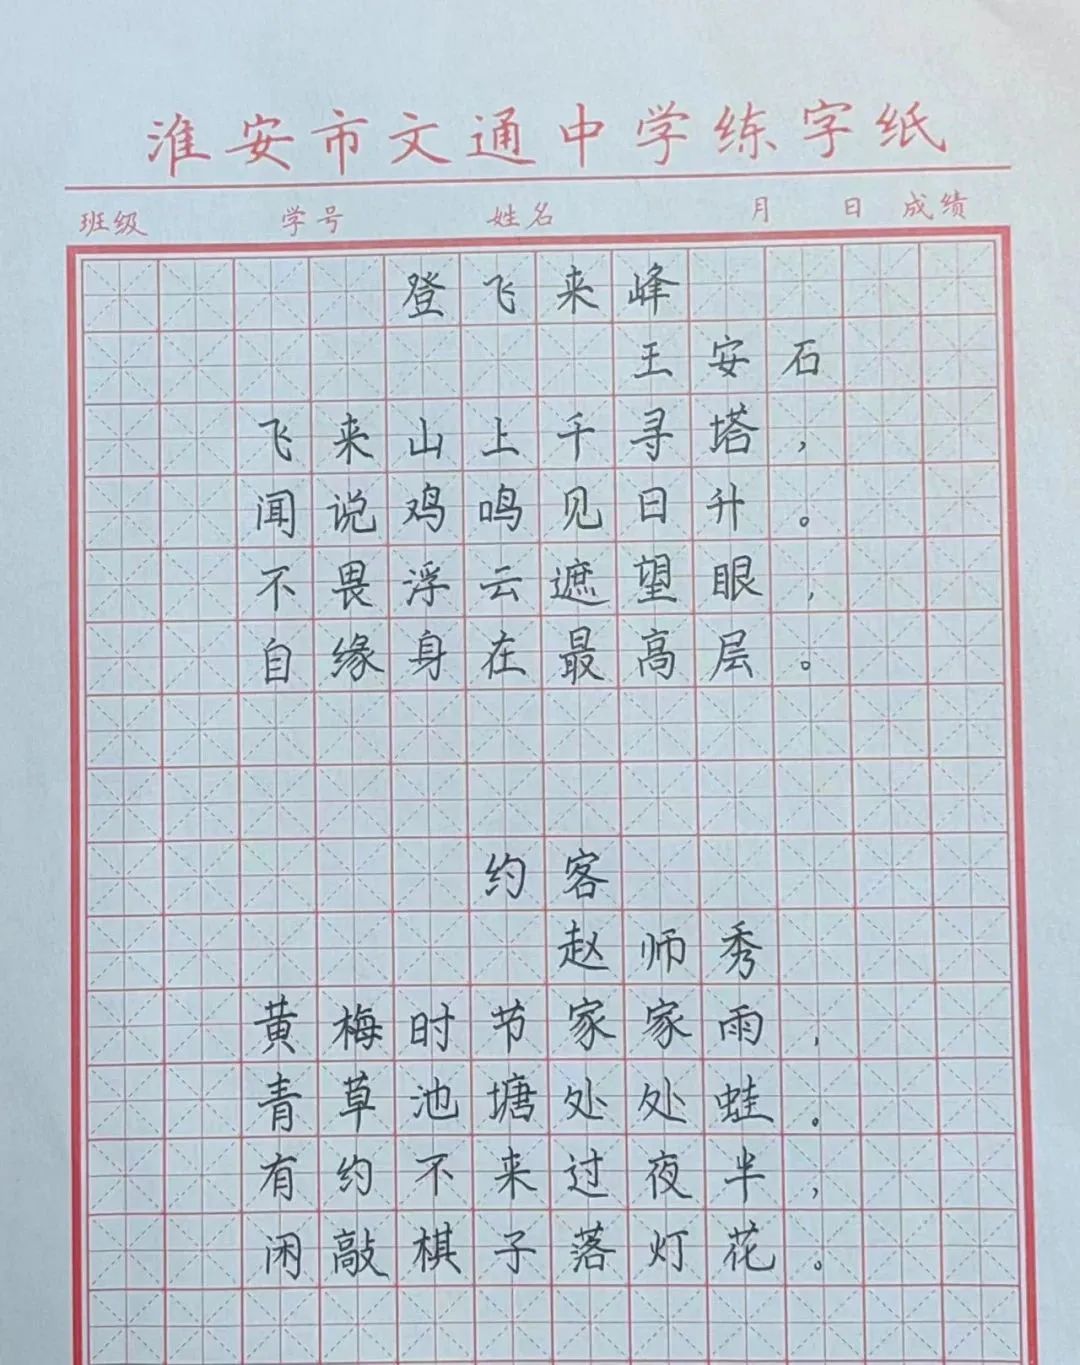 淮安市文通中学练字纸
班级 学号 姓名 月 日 成绩
登飞来峰
王安石
飞来山上千寻塔，
闻说鸡鸣见日升。
不畏浮云遮望眼，
自缘身在最高层。
约客
赵师秀
黄梅时节家家雨，
青草池塘处处蛙。
有约不来过夜半，
闲敲棋子落灯花。